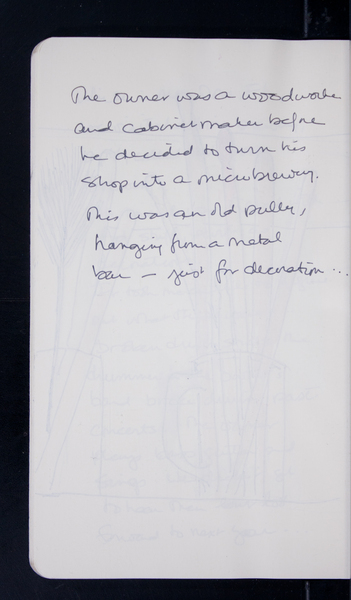 The owner was a woodworker
and cabinetmaker before
he decided to turn his
shop into a microbrewery.
This was an old pulley,
hanging from a metal
bar — just for decoration ...